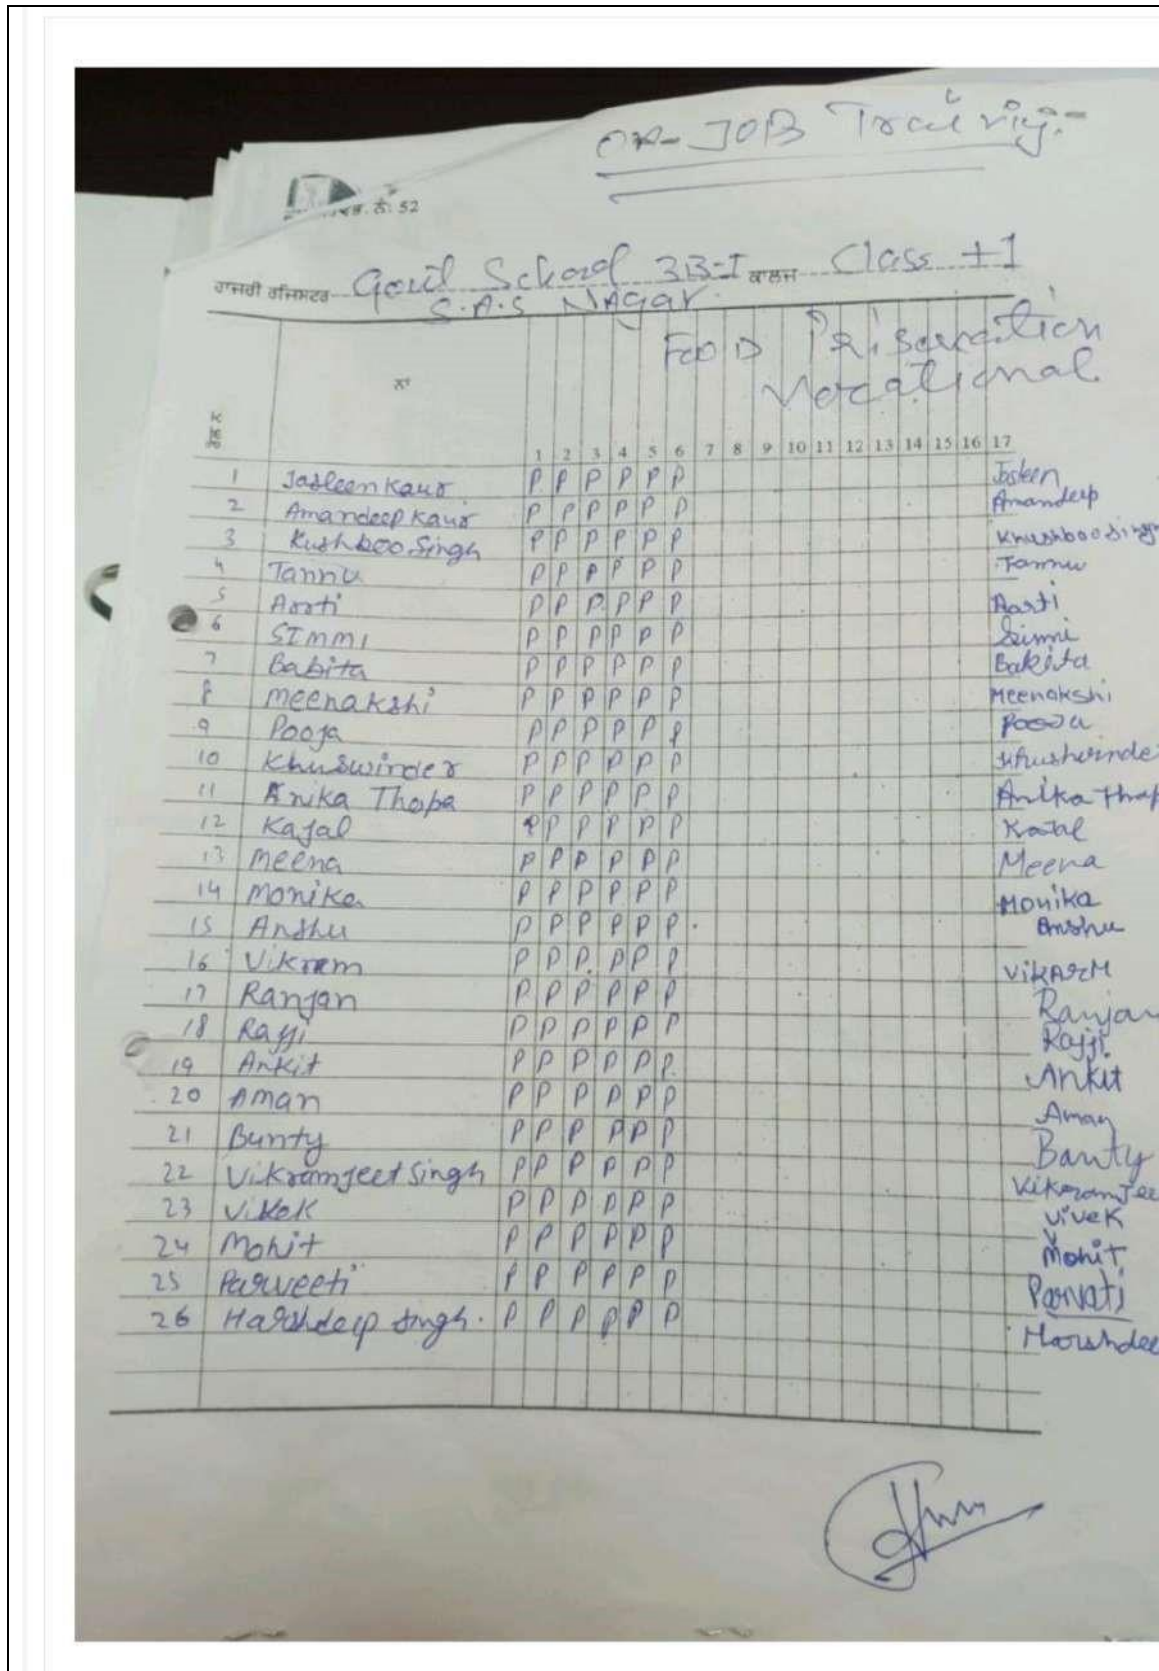 ON-JOB Training:-
ਨੰ: 52
ਹਾਜਰੀ ਰਜਿਸਟਰ Govt School 3B-I ਕਾਲਜ Class +1
S.A.S NAgar
FOOD Priservation
Vocational
ਰੋਲ ਨੰ ਨਾਂ 1 2 3 4 5 6 7 8 9 10 11 12 13 14 15 16 17
1 Jasleen Kaur P P P P P P Jasleen
2 Amandeep Kaur P P P P P P Amandeep
3 Kushboo Singh P P P P P P Khushboo Singh
4 Tannu P P P P P P Tannu
5 Aarti P P P P P P Aarti
6 SImmI P P P P P P Simmi
7 Babita P P P P P P Babita
8 Meenakshi P P P P P P Meenakshi
9 Pooja P P P P P P Pooja
10 Khuswinder P P P P P P Khushwinder
11 Anika Thapa P P P P P P Anika Thap
12 Kajal P P P P P P Kajal
13 Meena P P P P P P Meena
14 Monika P P P P P P Monika
15 Anshu P P P P P P Anshu
16 Vikram P P P P P P VIKARM
17 Ranjan P P P P P P Ranjan
18 Rajji P P P P P P Rajji
19 Ankit P P P P P P Ankit
20 Aman P P P P P P Aman
21 Bunty P P P P P P Banty
22 Vikramjeet Singh P P P P P P Vikaramjee
23 Vivek P P P P P P Vivek
24 Mohit P P P P P P Mohit
25 Parveeti P P P P P P Parvati
26 Harshdeep Singh. P P P P P P Harshdee